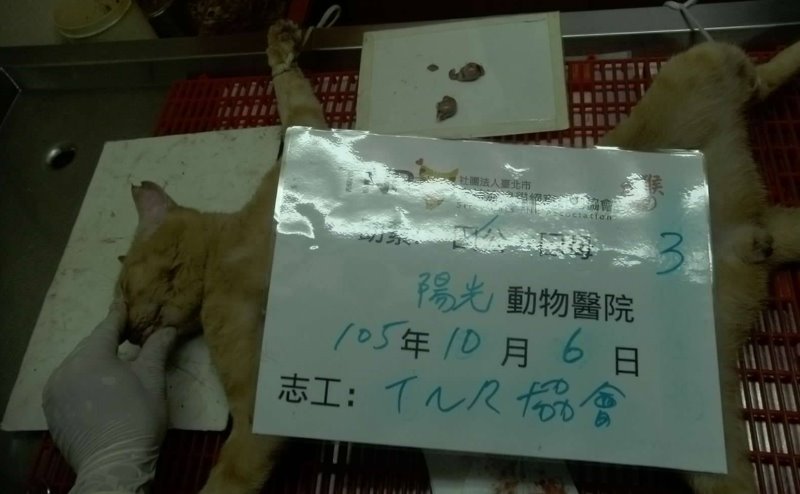 社團法人臺北市
協會
Association
3
陽光 動物醫院
105年10月6日
志工: TNR協會